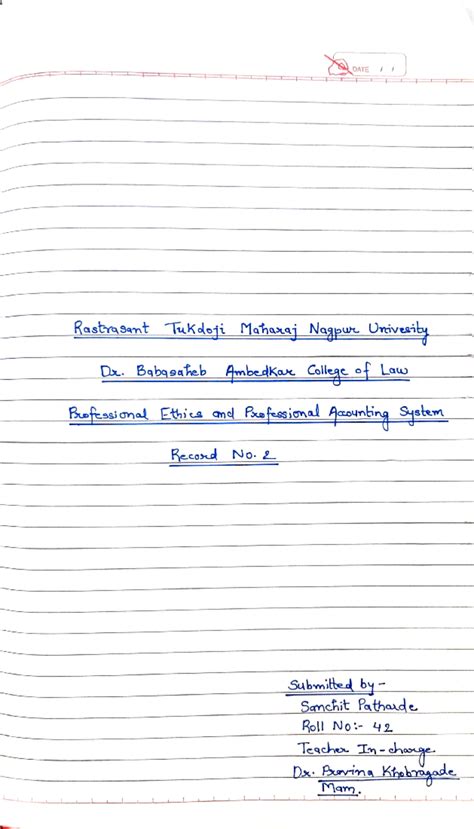 DATE / /
Rastrasant Tukdoji Maharaj Nagpur Univesity
Dr. Babasaheb Ambedkar College of Law
Professional Ethics and Professional Acounting System
Record No. 2
Submitted by -
Sanchit Patharde
Roll No:- 42
Teacher In-charge
Dr. Pravina Khobragade
Mam.